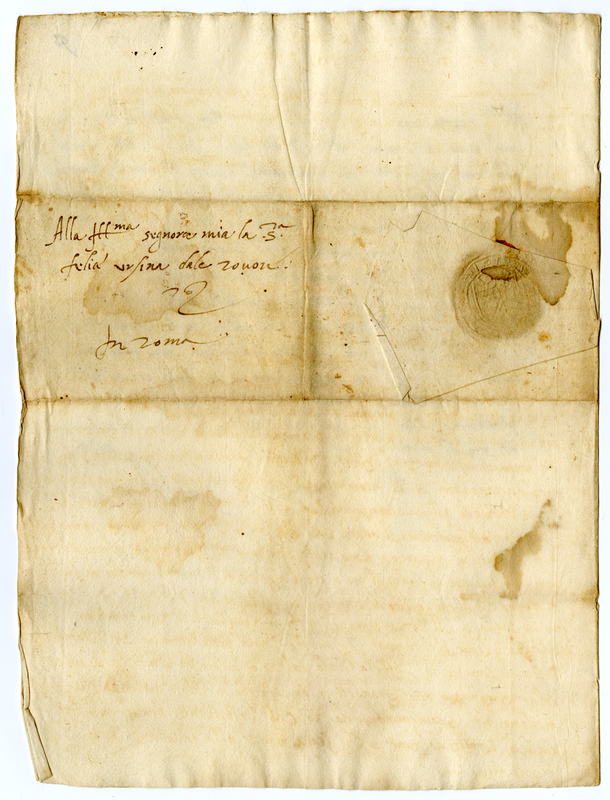 Alla Ill.ma segnora mia la S.ra
felia ursina dale rovore
In roma